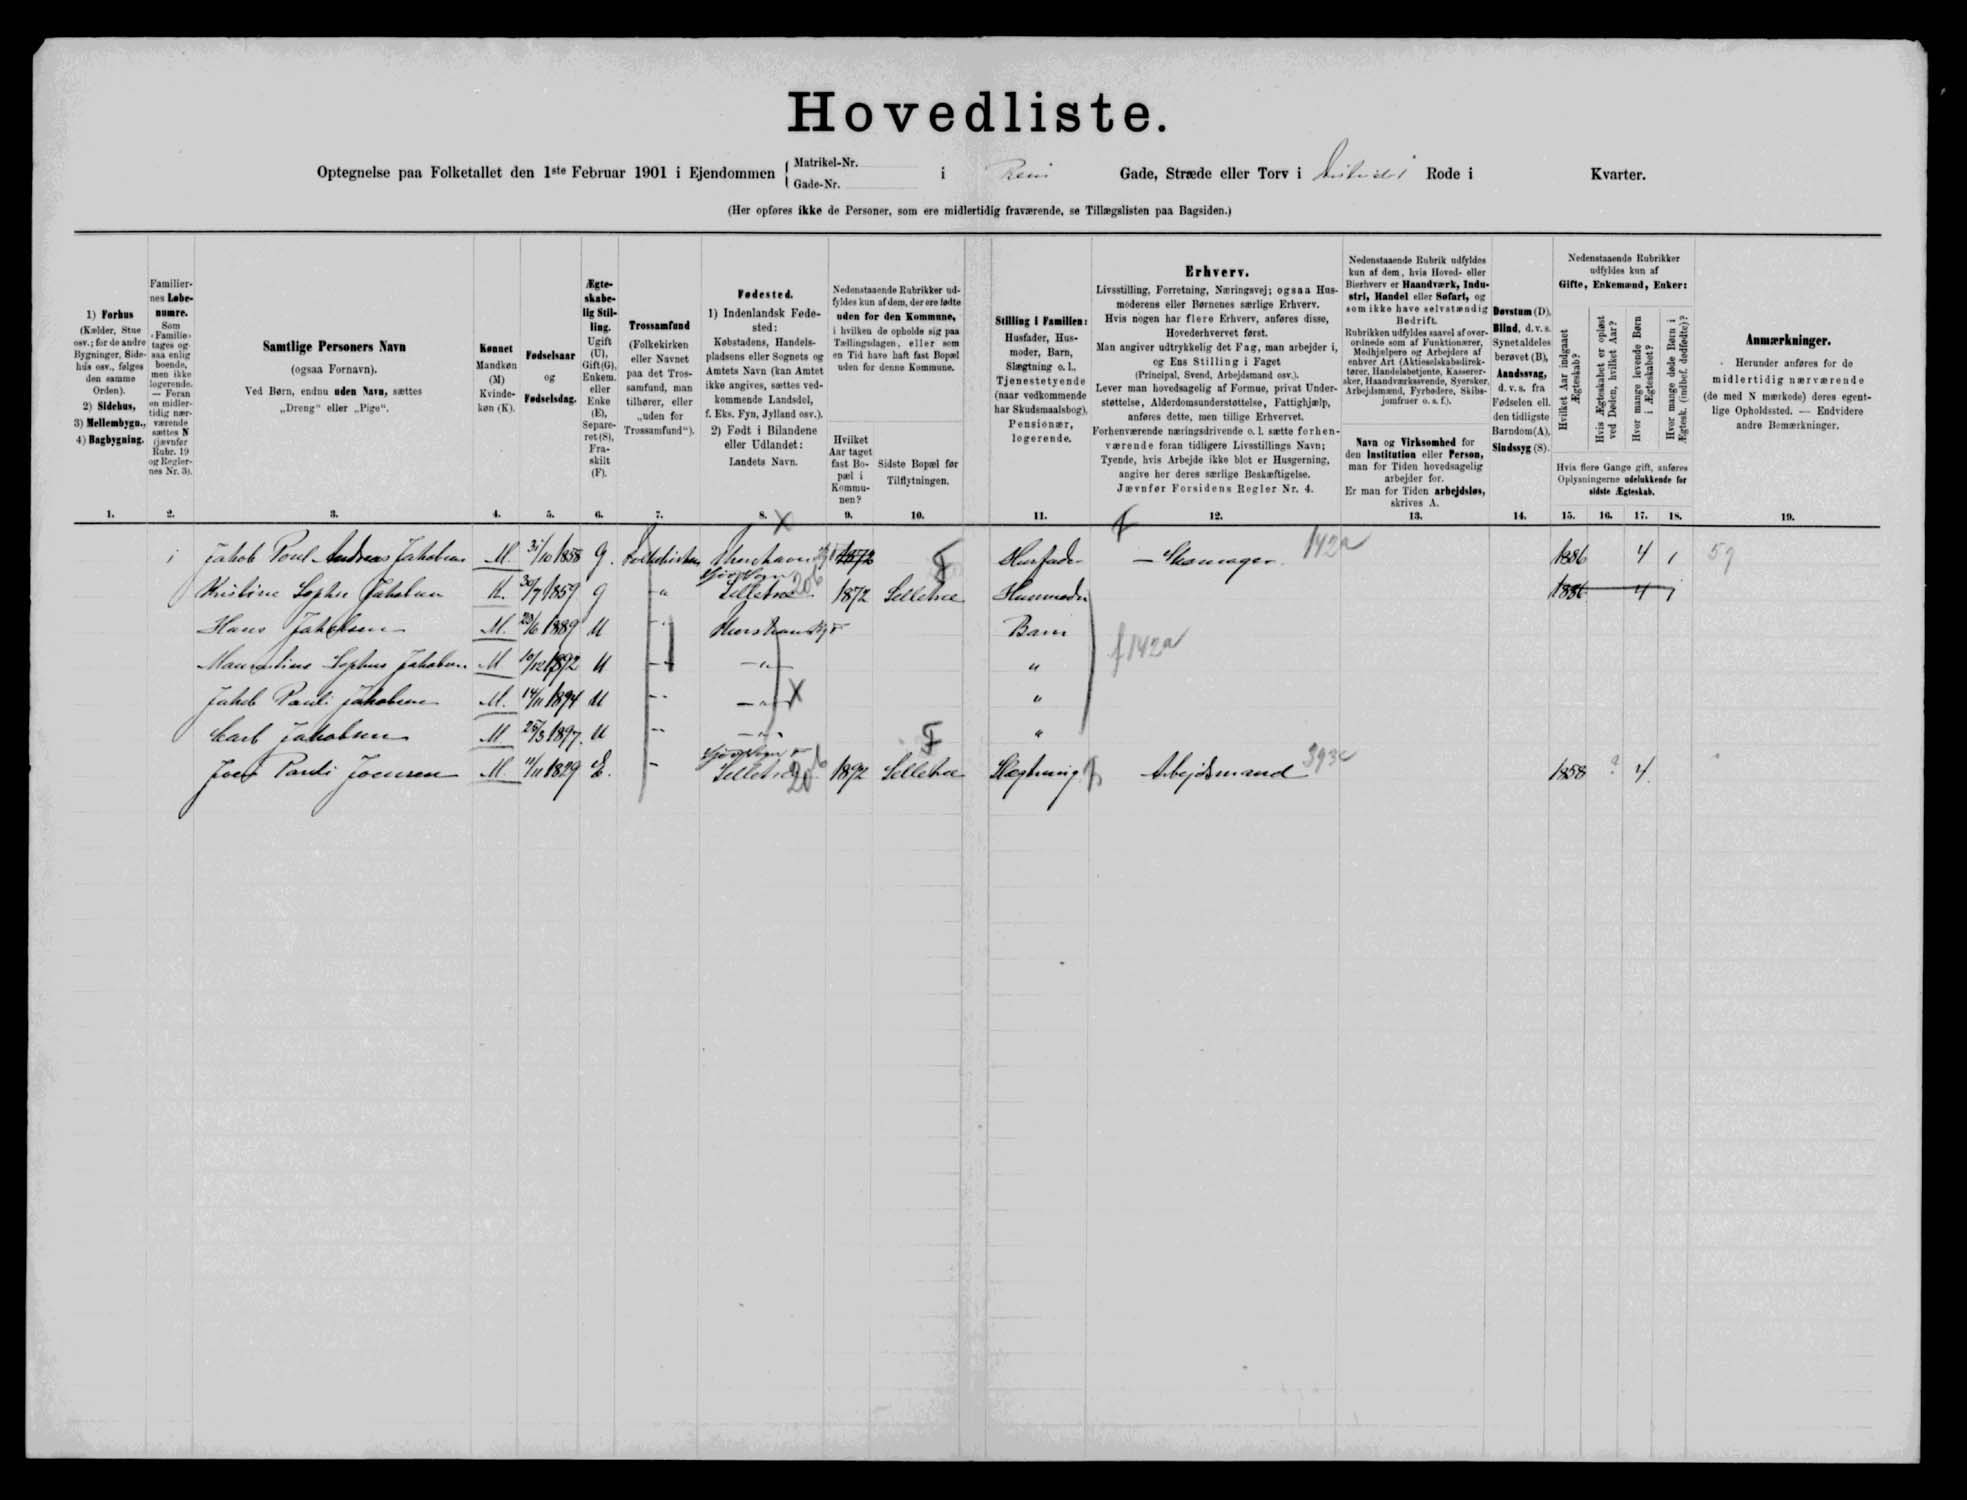 Hovedliste.
Optegnelse paa Folketallet den 1ste Februar 1901 i Ejendommen { Matrikel-Nr. Gade-Nr. i Gade, Stræde eller Torv i Rode i Kvarter.
(Her opføres ikke de Personer, som ere midlertidig fraværende, se Tillægslisten paa Bagsiden.)
1) Forhus
(Kælder, Stue
osv.; for de andre
Bygninger, Side-
hus osv., følges
den samme
Orden).
2) Sidehus,
3) Mellembygn.,
4) Bagbygning.
1.
Familier-
nes Løbe-
numre.
Som
»Familie»
tages og-
saa enlig
boende,
men ikke
logerende.
— Foran
en midler-
tidig nær-
værende
sættes N
(jævnfør
Rubr. 19
og Regler-
nes Nr. 3).
2.
Samtlige Personers Navn
(ogsaa Fornavn).
Ved Børn, endnu uden Navn, sættes
„Dreng" eller „Pige".
3.
Kønnet
Mandkøn
(M)
Kvinde-
køn (K).
4.
Fødselsaar
og
Fødselsdag.
5.
Ægte-
skabe-
lig Stil-
ling.
Ugift
(U),
Gift(G),
Enkem.
eller
Enke
(E),
Separe-
ret (S),
Fra-
skilt
(F).
6.
Trossamfund
(Folkekirken
eller Navnet
paa det Tros-
samfund, man
tilhører, eller
„uden for
Trossamfund").
7.
Fødested.
1) Indenlandsk Føde-
sted:
Købstadens, Handels-
pladsens eller Sognets og
Amtets Navn (kan Amtet
ikke angives, sættes ved-
kommende Landsdel,
f. Eks. Fyn, Jylland osv.).
2) Født i Bilandene
eller Udlandet:
Landets Navn.
8. X
Nedenstaaende Rubrikker ud-
fyldes kun af dem, der ere fødte
uden for den Kommune,
i hvilken de opholde sig paa
Tællingsdagen, eller som
en Tid have haft fast Bopæl
uden for denne Kommune.
Hvilket
Aar taget
fast Bo-
pæl i
Kommu-
nen?
9.
Sidste Bopæl før
Tilflytningen.
10.
Stilling i Familien:
Husfader, Hus-
moder, Barn,
Slægtning o. l.,
Tjenestetyende
(naar vedkommende
har Skudsmaalsbog),
Pensionær,
logerende.
11.
Erhverv.
Livsstilling, Forretning, Næringsvej; ogsaa Hus-
moderens eller Børnenes særlige Erhverv.
Hvis nogen har flere Erhverv, anføres disse,
Hovederhvervet først.
Man angiver udtrykkelig det Fag, man arbejder i,
og Ens Stilling i Faget
(Principal, Svend, Arbejdsmand osv.).
Lever man hovedsagelig af Formue, privat Under-
støttelse, Alderdomsunderstøttelse, Fattighjælp,
anføres dette, men tillige Erhvervet.
Forhenværende næringsdrivende o. l. sætte forhen-
værende foran tidligere Livsstillings Navn;
Tyende, hvis Arbejde ikke blot er Husgerning,
angive her deres særlige Beskæftigelse.
Jævnfør Forsidens Regler Nr. 4.
12.
Nedenstaaende Rubrik udfyldes
kun af dem, hvis Hoved- eller
Bierhverv er Haandværk, Indu-
stri, Handel eller Søfart, og
som ikke have selvstændig
Bedrift.
Rubrikken udfyldes saavel af over-
ordnede som af Funktionærer,
Medhjælpere og Arbejdere af
enhver Art (Aktieselskabsdirek-
tører, Handelsbetjente, Kasserer-
sker, Haandværkssvende, Syersker,
Arbejdsmænd, Fyrbødere, Skibs-
jomfruer o. s. f.).
Navn og Virksomhed for
den Institution eller Person,
man for Tiden hovedsagelig
arbejder for.
Er man for Tiden arbejdsløs,
skrives A.
13.
Døvstum (D),
Blind, d. v. s.
Synet aldeles
berøvet (B),
Aandssvag,
d. v. s. fra
Fødselen ell.
den tidligste
Barndom (A),
Sindssyg (S).
14.
Nedenstaaende Rubrikker
udfyldes kun af
Gifte, Enkemænd, Enker:
Hvilket Aar indgaaet
Ægteskab?
Hvis Ægteskabet er opløst
ved Døden, hvilket Aar?
Hvor mange levende Børn
i Ægteskabet?
Hvor mange døde Børn i
Ægtesk. (indbef. dødfødte)?
Hvis flere Gange gift, anføres
Oplysningerne udelukkende for
sidste Ægteskab.
15. 16. 17. 18.
Anmærkninger.
Herunder anføres for de
midlertidig nærværende
(de med N mærkode) deres egent-
lige Opholdssted. — Endvidere
andre Bemærkninger.
19.
1 Jakob Poul Andreas Jakobsen M. 31/10 1858 G. Folkekirken Thorshavn 1872 Husfader — Skomager 142a 1886 4 1 59
Kristine Sophie Jakobsen K. 30/7 1859 G " Selletræ 20b 1872 Selletræ Husmoder 1886 4 1
Hans Jakobsen M. 23/6 1889 U " Thorshavn Barn
Maurentius Sophus Jakobsen M 10/12 1892 U " — " — " f 142a
Jakob Pauli Jakobsen M. 14/11 1894 U " — " — X "
Carl Jakobsen M 25/3 1897. U " — " — "
Joen Pauli Joensen M. 11/11 1829 E. " Selletræ 20b 1892 Selletræ Slægtning Arbejdsmand 393c 1858 ? 4.